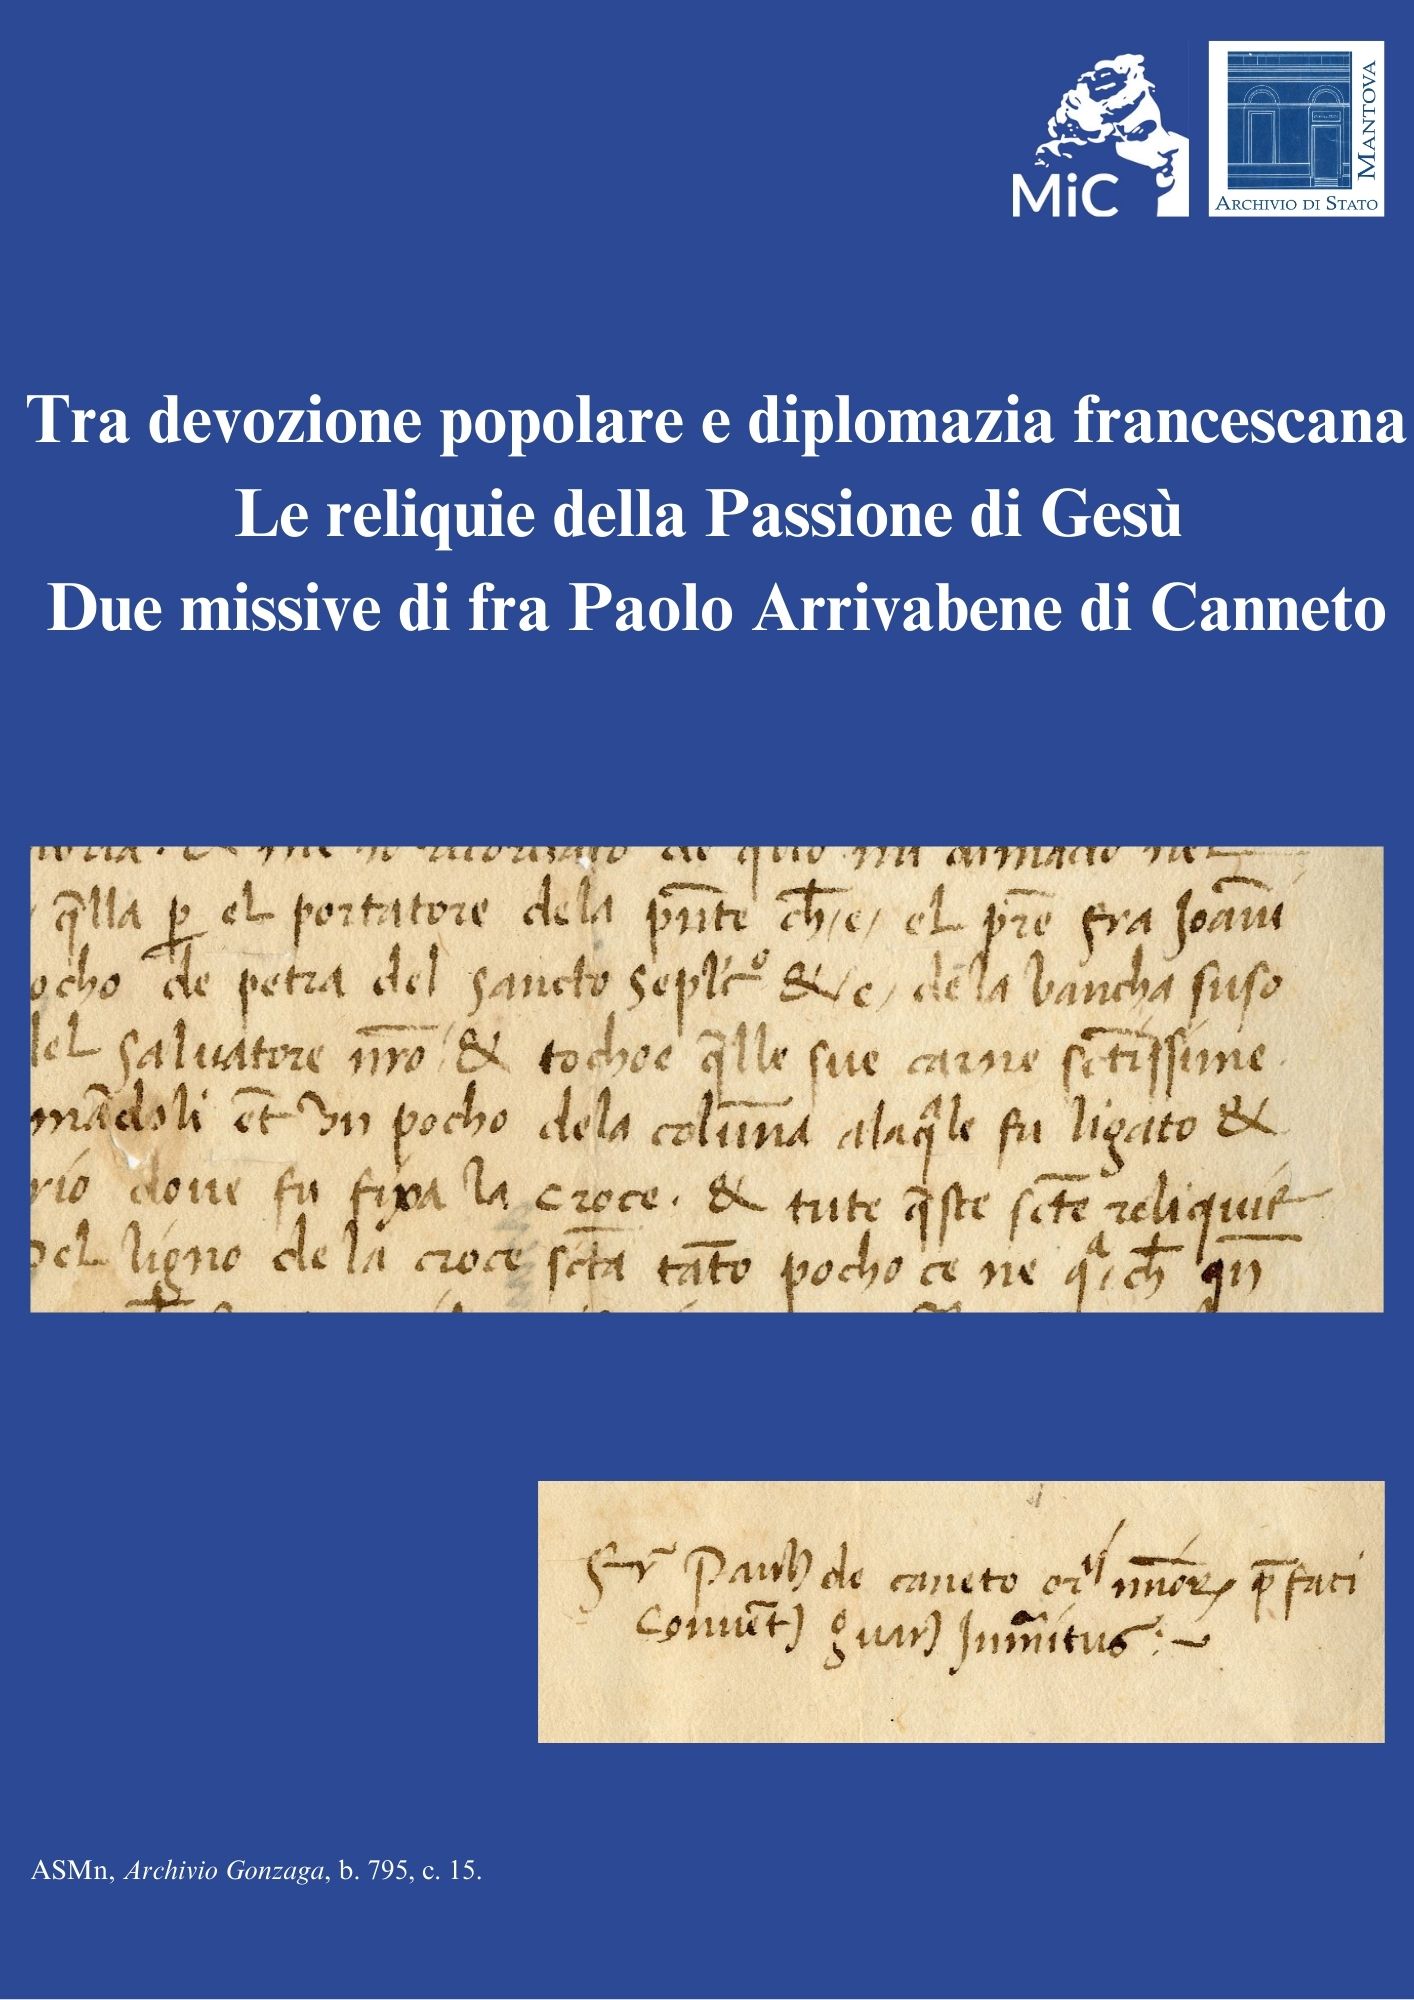 MiC
MANTOVA
ARCHIVIO DI STATO
Tra devozione popolare e diplomazia francescana
Le reliquie della Passione di Gesù
Due missive di fra Paolo Arrivabene di Canneto
q̄lla p el portatore dela pn̄te ch̄ /e/ el pr̄e fra Joāni
ocho de petra del sancto &/e/ dela bancha suso
del salvatore nr̄o & tochoe q̄lle sue carne sctīssime.
mādoli et un pocho dela colūna alaqale fu ligato &
rio doue fu fixa la croce. & tute q̄ste scte reliquie
del ligno de la croce scta tāto pocho ce ne qa, ch̄ qn̄
de caneto p̄fati
ASMn, Archivio Gonzaga, b. 795, c. 15.